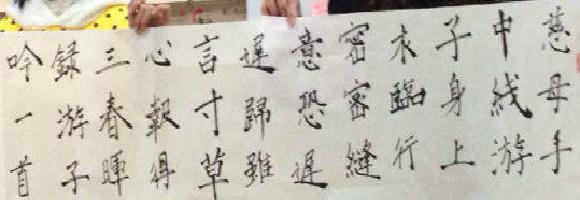 慈母手
中线游
子身上
衣臨行
密密縫
意恐遲
遲歸雖
言寸草
心報得
三春暉
錄游子
吟一首